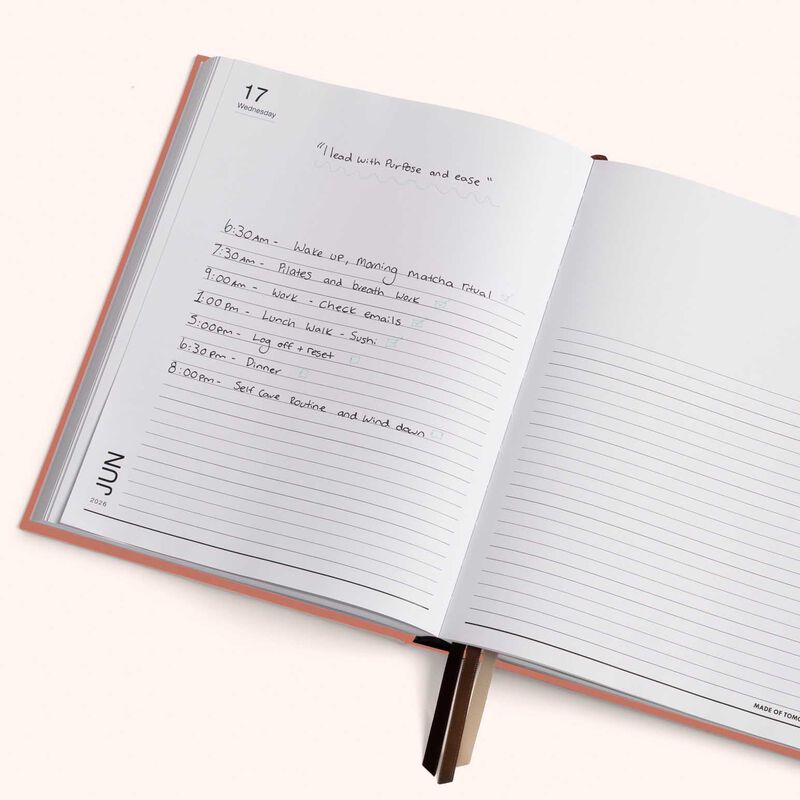 17
Wednesday
"I lead with purpose and ease"
6:30AM - Wake up, morning matcha ritual
7:30AM - Pilates and breath work
9:00AM - Work - Check emails
1:00PM - Lunch Walk - Sushi
5:00PM - Log off + reset
6:30PM - Dinner
8:00PM - Self Care Routine and wind down
JUN
2026
MADE OF TOMO